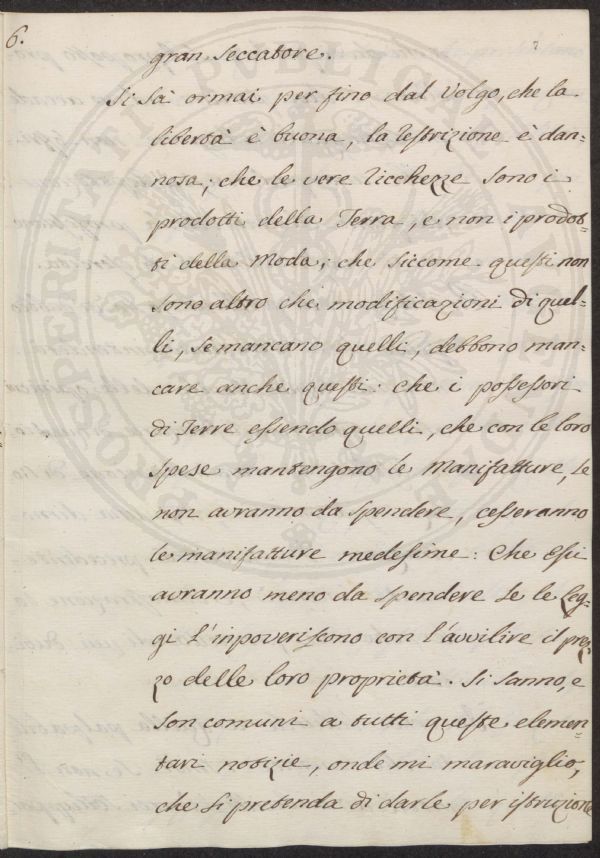 6.
7
gran Seccatore.
Si sà ormai per fino dal Volgo, che la
libertà è buona, la restrizione è dan=
nosa; che le vere ricchezze sono i
prodotti della Terra, e non i prodot=
ti della Moda; che siccome questi non
sono altro che modificazioni di quel=
li, se mancano quelli, debbono man=
care anche questi: che i possessori
di Terre essendo quelli, che con le loro
spese mantengono le Manifatture, se
non avranno da spendere, cesseranno
le manifatture medesime: Che Essi
avranno meno da spendere se le leg=
gi l'inpoveriscono con l'avvilire il prez=
zo delle loro proprietà. Si sanno, e
son comuni a tutti queste elemen=
tari notizie, onde mi maraviglio,
che si pretenda di darle per istruzione
PROSPERITATI PUBLICAE